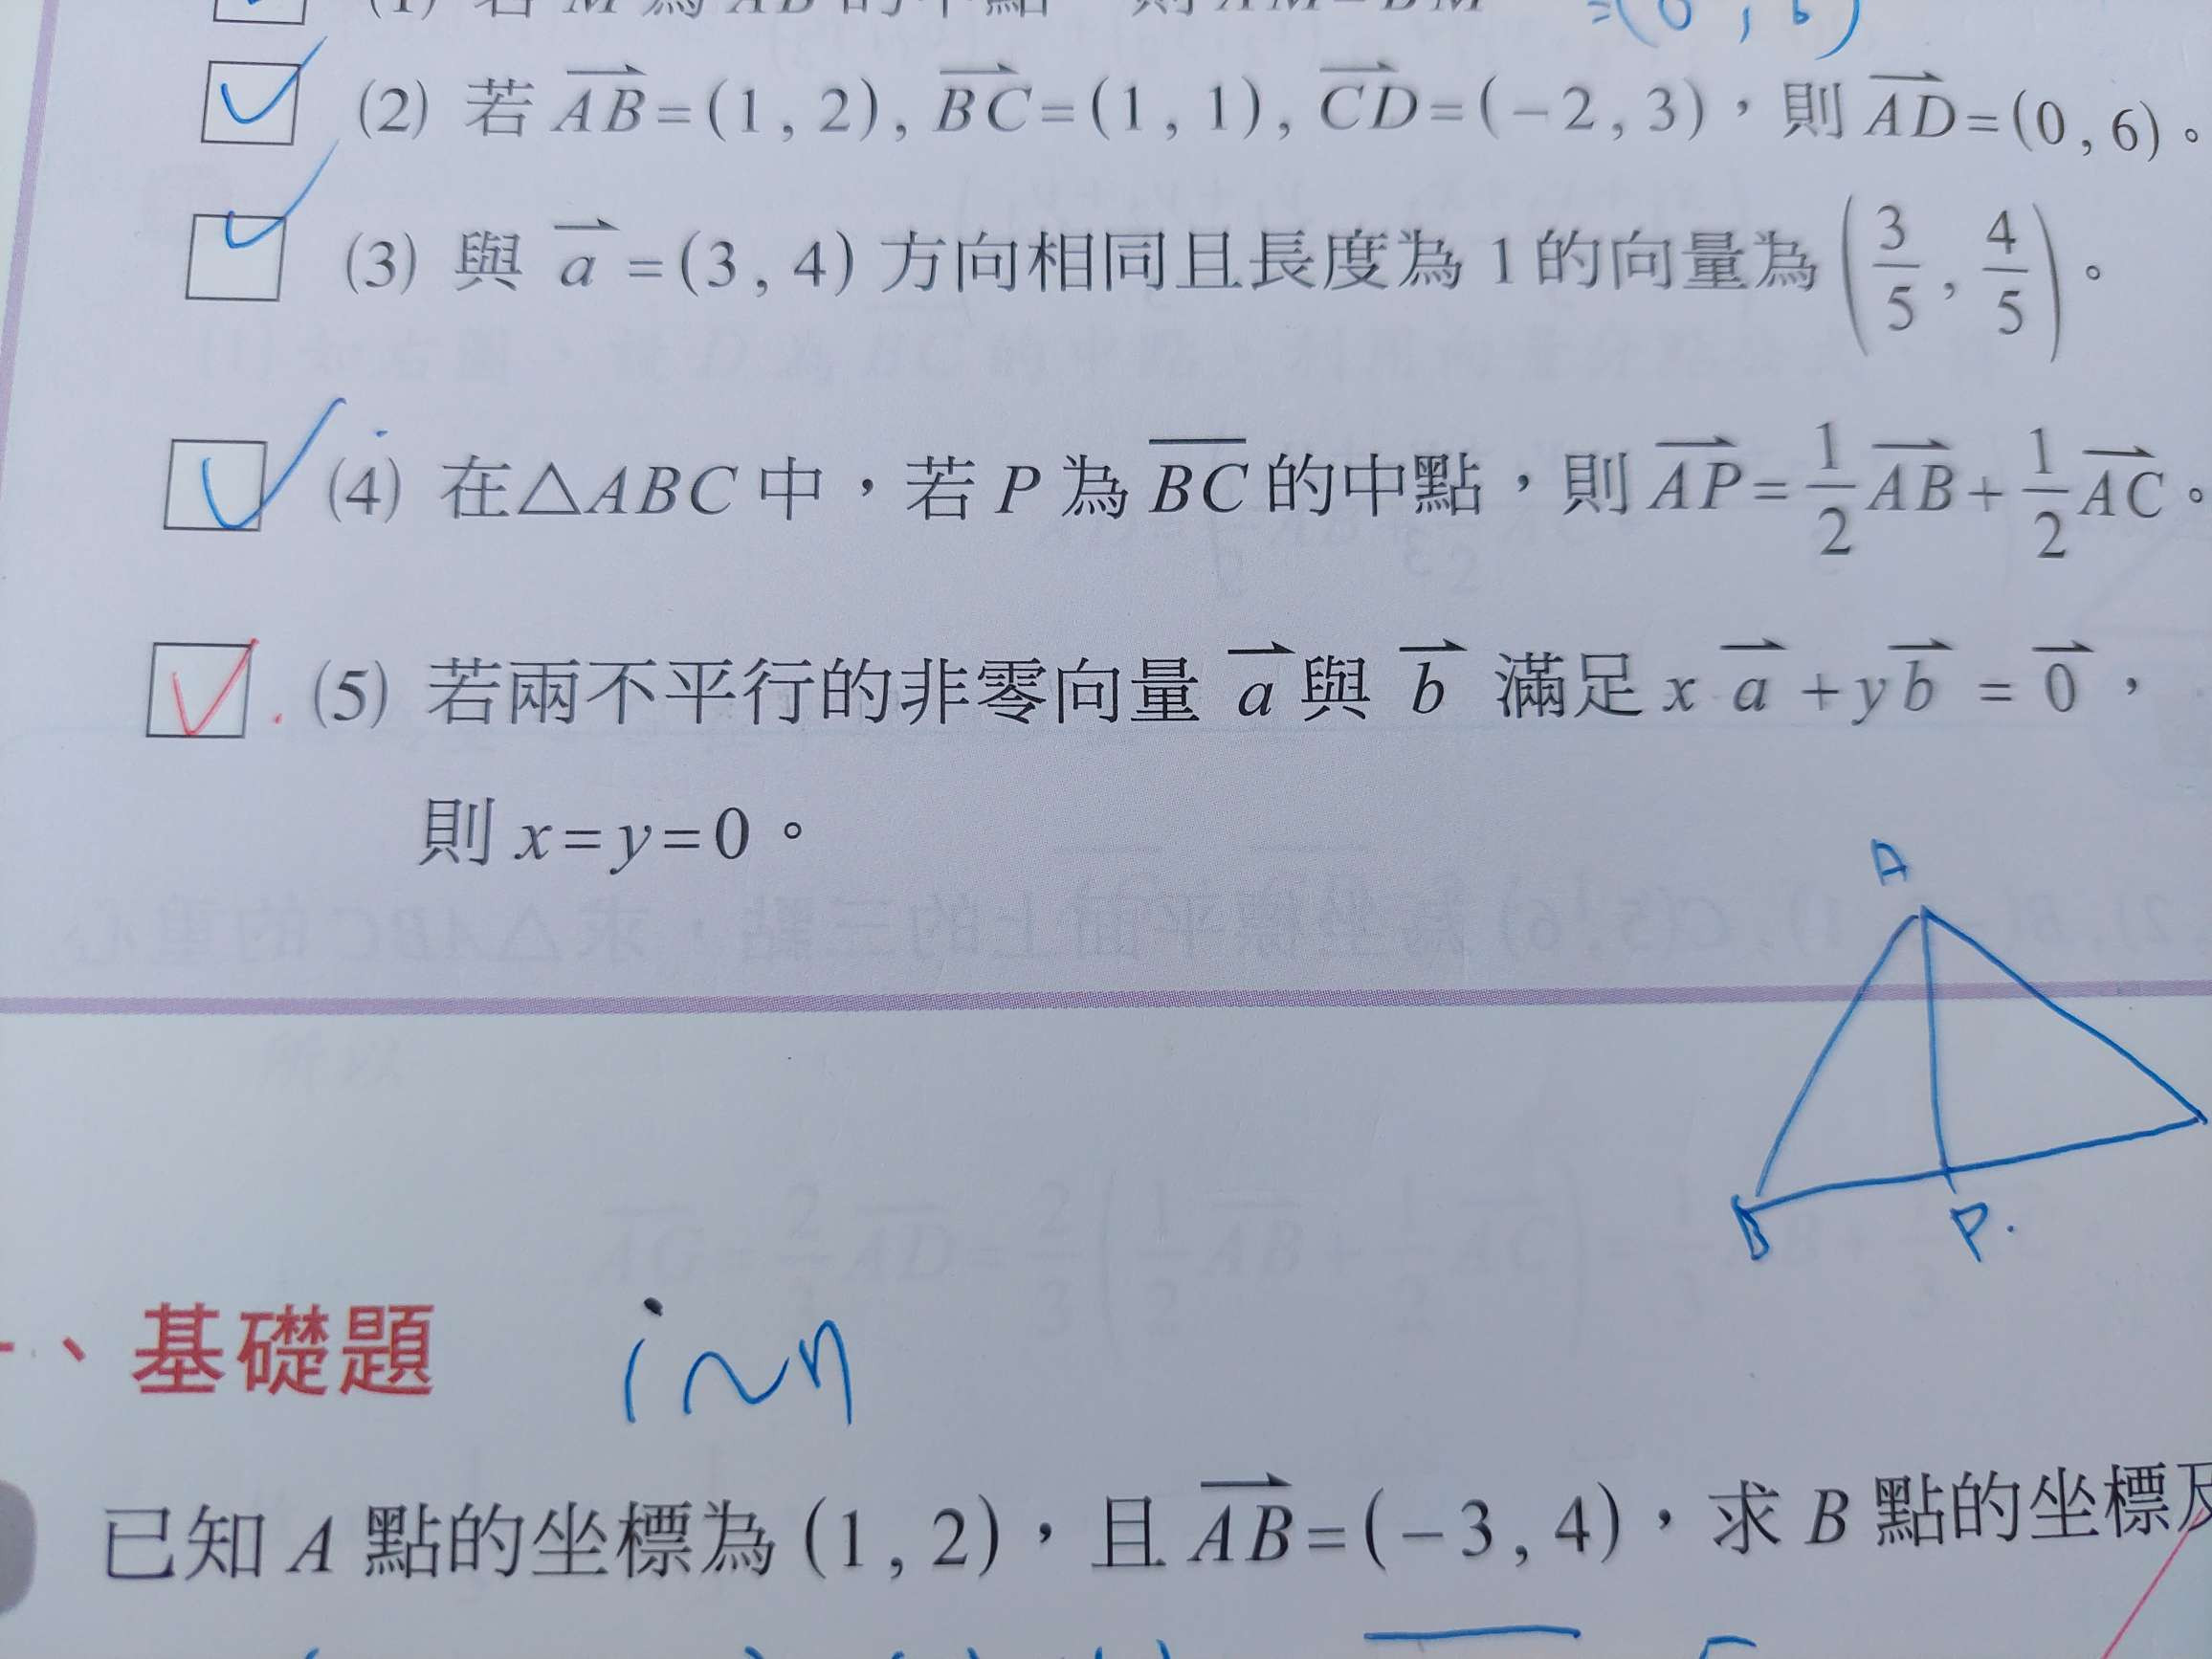 (2) 若 $\overrightarrow{AB}=(1,2), \overrightarrow{BC}=(1,1), \overrightarrow{CD}=(-2,3)$,則 $\overrightarrow{AD}=(0,6)$。
(3) 與 $\overrightarrow{a}=(3,4)$ 方向相同且長度為 1 的向量為 $\left(\frac{3}{5},\frac{4}{5}\right)$。
(4) 在△ABC 中,若 P 為 $\overline{BC}$ 的中點,則 $\overrightarrow{AP}=\frac{1}{2}\overrightarrow{AB}+\frac{1}{2}\overrightarrow{AC}$。
(5) 若兩不平行的非零向量 $\overrightarrow{a}$ 與 $\overrightarrow{b}$ 滿足 $x\overrightarrow{a}+y\overrightarrow{b}=\overrightarrow{0}$,
則 x=y=0。
A
B
P.
、基礎題
1~9
已知 A 點的坐標為 (1,2),且 $\overrightarrow{AB}=(-3,4)$,求 B 點的坐標及